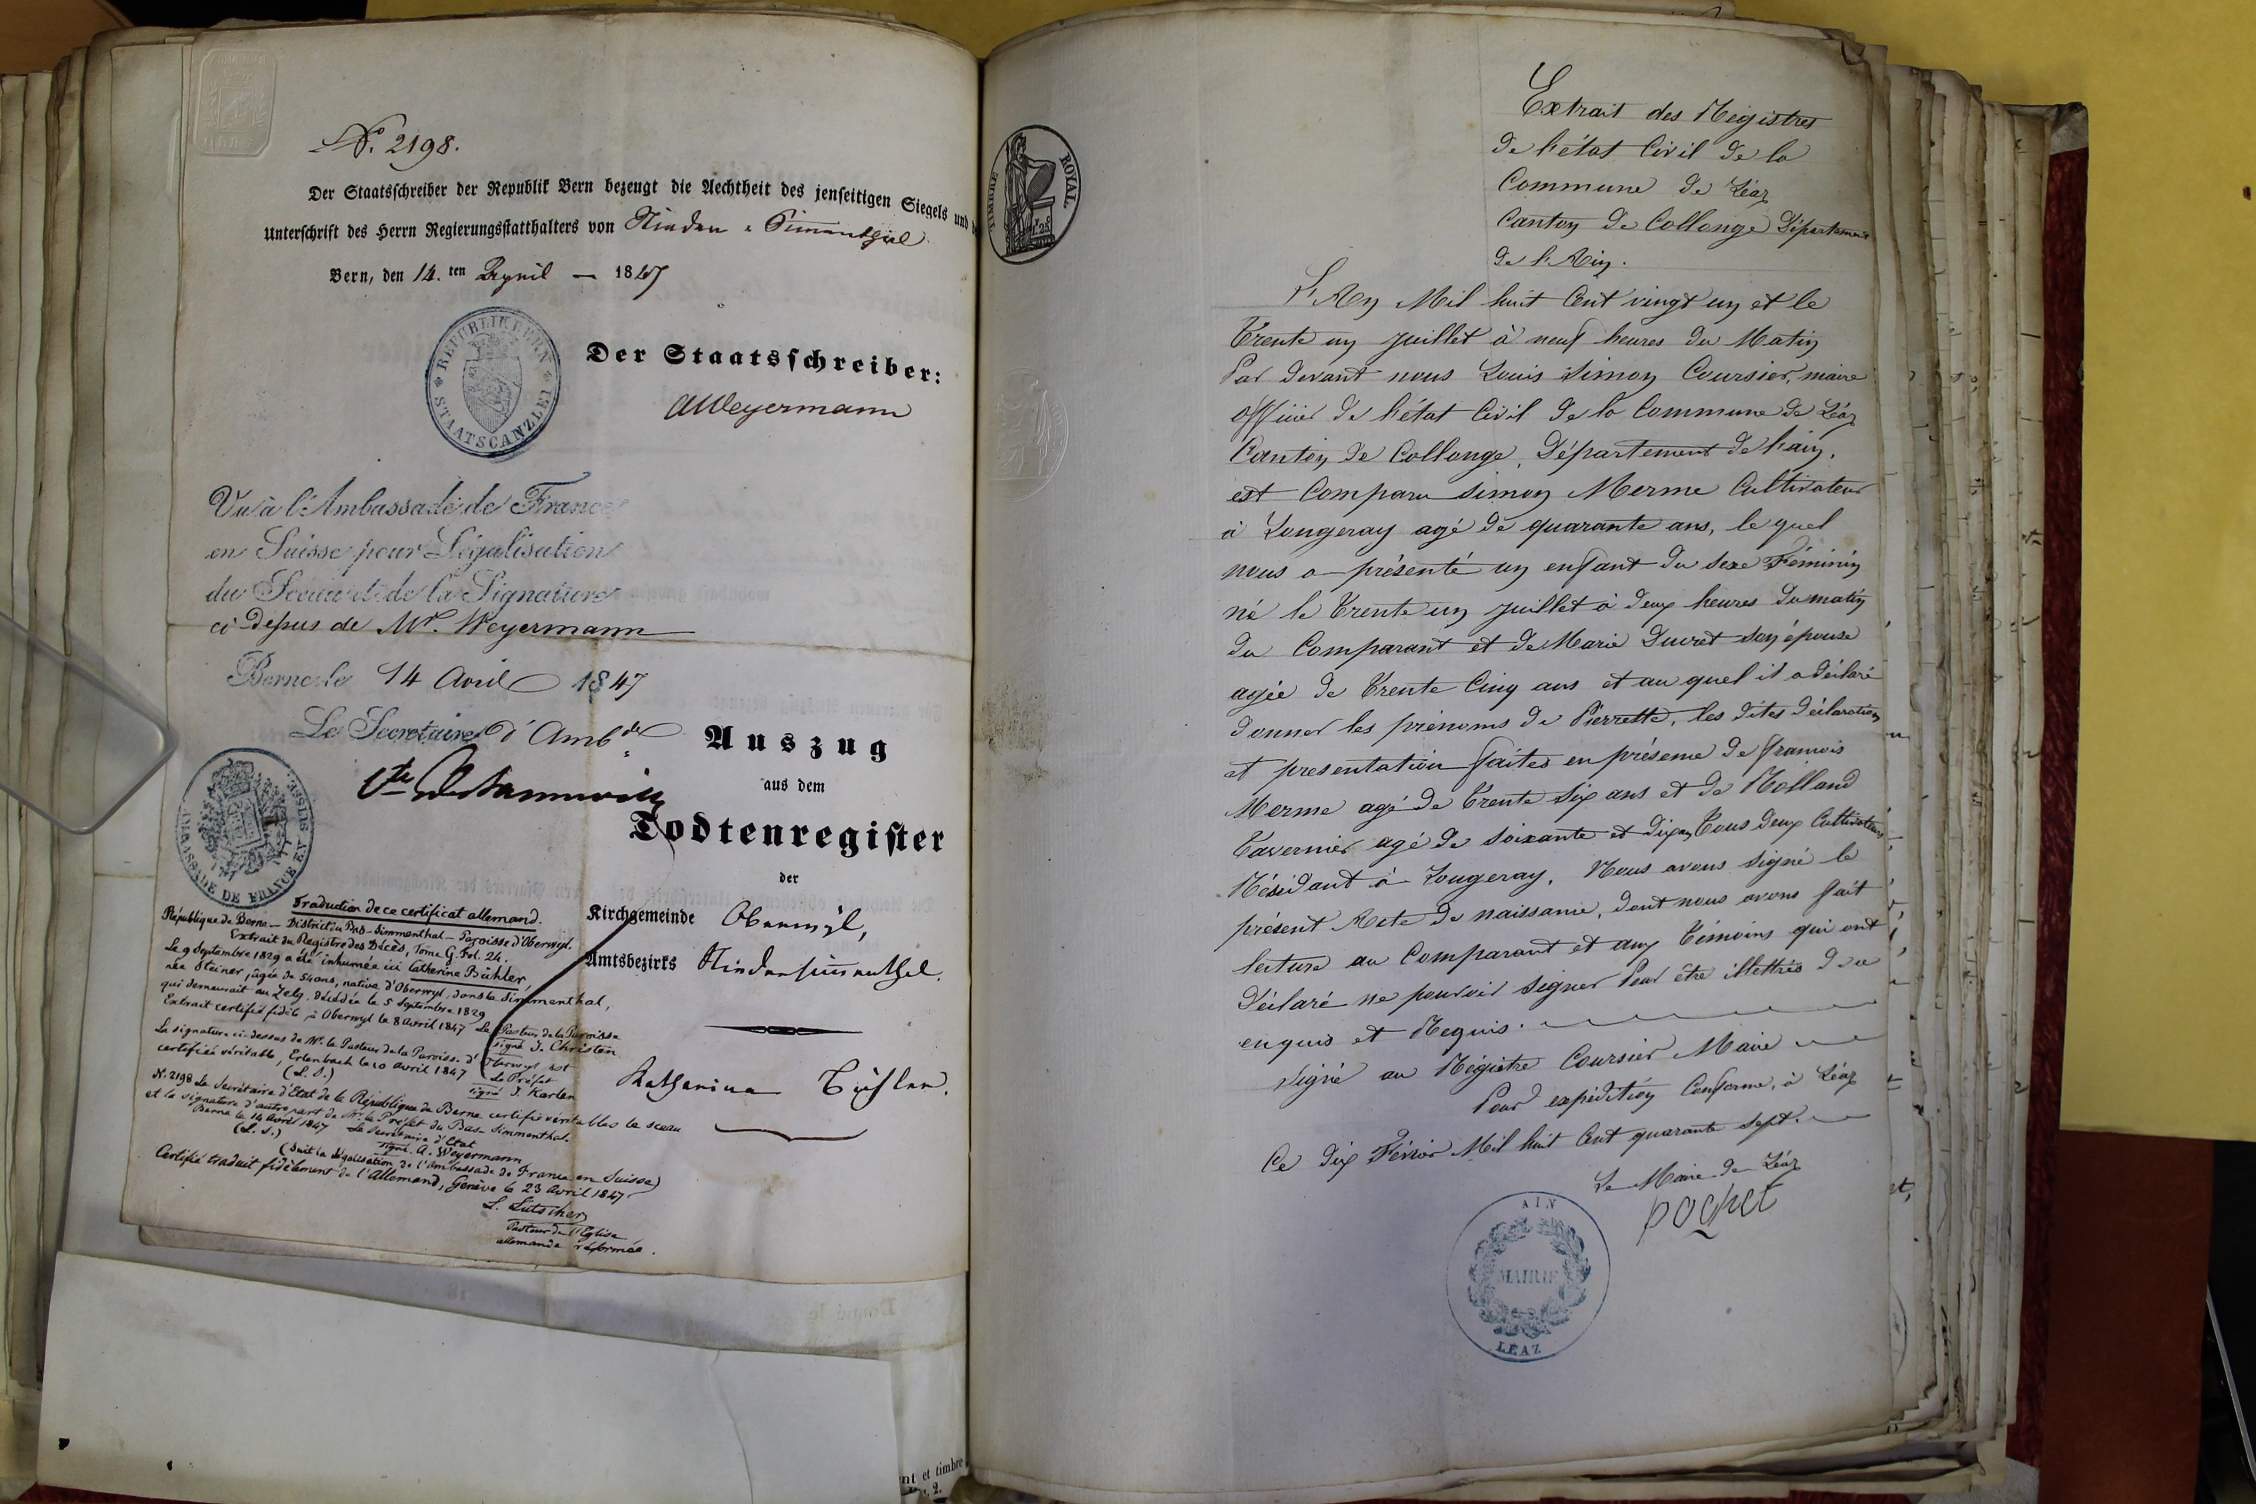 N.º 2198.
Der Staatsschreiber der Republik Bern bezeugt die Aechtheit des jenseitigen Siegels und
Unterschrift des Herrn Regierungsstatthalters von Nieder-Simmenthal.
Bern, den 14.ten April — 1847
REPUBLIK BERN
STAATSCANZLEI
Der Staatsschreiber:
A Weyermann
Vu à l'Ambassade de France
en Suisse pour Légalisation
du Sceau et de la Signature
ci-dessus de Mr. Weyermann
Berne le 14 Avril 1847
Le Secrétaire d'Ambde
AMBASSADE DE FRANCE EN SUISSE
Auszug
aus dem
Todtenregister
der
Kirchgemeinde Oberwyl,
Amtsbezirks Niedersimmenthal.
Katharina Bühler.
Traduction de ce certificat allemand.
République de Berne — District du Bas-Simmenthal — Paroisse d'Oberwyl.
Extrait du Registre des Décès, Tome G. Fol. 24.
Le 9 Septembre 1829 a été inhumée ici Catherine Bühler,
née Steiner, âgée de 54 ans, native d'Oberwyl, dans le Simmenthal,
qui demeurait au Zelg, décédée le 5 Septembre 1829
Extrait certifié fidèle, à Oberwyl le 8 Avril 1847 Le Pasteur de la Paroisse
signé J. Christen
La signature ci-dessus de Mr. le Pasteur de la Paroisse d'Oberwyl est
certifiée véritable, Erlenbach le 10 Avril 1847 Le Préfet
(L. S.) signé J. Karlen
N.º 2198 Le Secrétaire d'Etat de la République de Berne certifie véritables le sceau
et la signature d'autre part de Mr. le Préfet du Bas-Simmenthal.
Berne le 14 Avril 1847 Le Secrétaire d'Etat
(L. S.) signé A. Weyermann
(Suit la légalisation de l'Ambassade de France en Suisse)
Certifié traduit fidèlement de l'Allemand, Genève le 23 Avril 1847.
L. Lütscher
Pasteur de l'Eglise
allemande réformée.
nt et timbre
2.
TIMBRE ROYAL
Extrait des Régistres
de l'état Civil de la
Commune de Léaz
Canton de Collonge Département
de l'Ain.
L'An Mil huit Cent vingt un et le
Trente un juillet à neuf heures du Matin
Par devant nous Louis Simon Coursier, maire
officier de l'état Civil de la Commune de Léaz
Canton de Collonge, Département de l'ain,
est Comparu Simon Merme Cultivateur
à Longeray agé de quarante ans, le quel
nous a présenté un enfant du sexe Féminin
né le Trente un juillet à deux heures du matin
du Comparant et de Marie Ducret son épouse
agée de Trente Cinq ans et au quel il a déclaré
donner les prénoms de Pierrette, les dites déclaration
et presentation faites en présence de francois
Merme agé de Trente six ans et de Rolland
Tavernier agé de soixante et dix ans Tous deux Cultivateurs
Résidant à Longeray. Nous avons signé le
présent Acte de naissance, dont nous avons fait
lecture au Comparant et aux Témoins qui ont
déclaré ne pouvoir signer Pour être illettrés de ce
enquis et Requis.
signé au Régistre Coursier Maire
Pour expédition Conforme, à Léaz
Ce dix Février Mil huit Cent quarante sept.
Le Maire de Léaz
pochet
AIN
MAIRIE
LEAZ